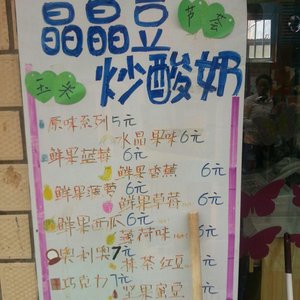 晶晶豆
芦荟
玉米
炒酸奶
原味系列5元
水晶果味6元
鲜果蓝莓 6元
鲜果香蕉 6元
鲜果菠萝 6元
鲜果草莓 6元
鲜果西瓜 6元
薄荷味 6元
奥利奥7元
抹茶红豆 元
巧克力7元
坚果蜜豆 元